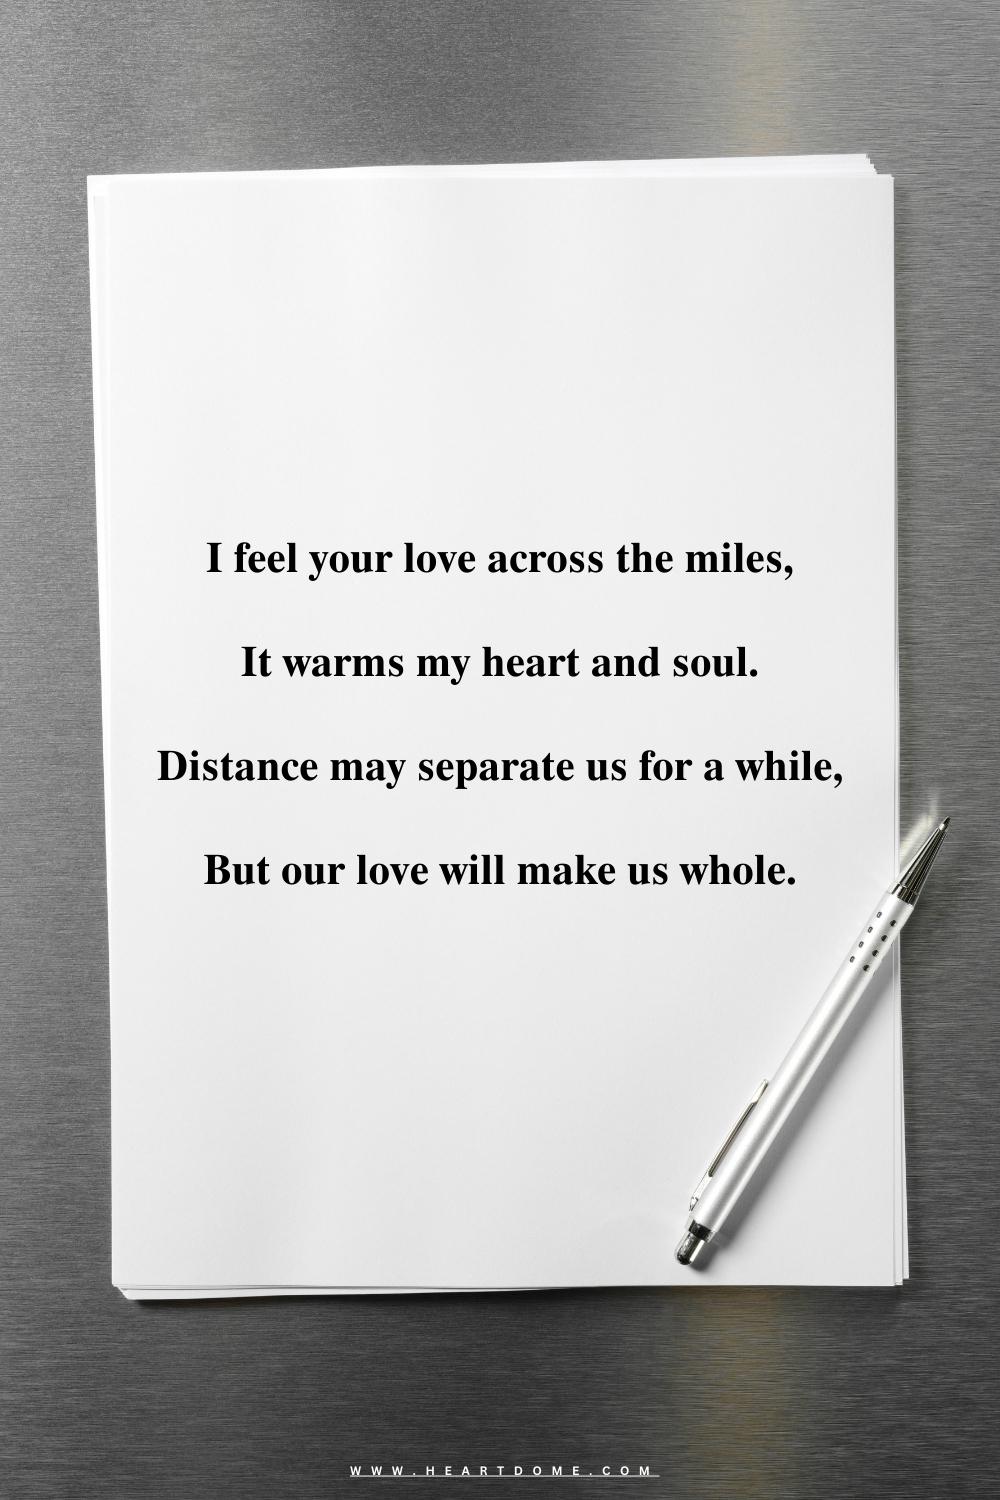 I feel your love across the miles,
It warms my heart and soul.
Distance may separate us for a while,
But our love will make us whole.
WWW.HEARTDOME.COM